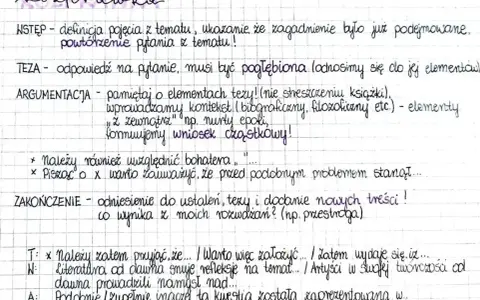 WSTĘP - definicja pojęcia z tematu, ukazanie, że zagadnienie było już podejmowane,
powtórzenie pytania z tematu!
TEZA - odpowiedź na pytanie, musi być pogłębiona (odnosimy się do jej elementów)
ARGUMENTACJA - pamiętaj o elementach tezy! (nie streszczeniu książki),
wprowadzamy kontekst (biograficzny, filozoficzny etc.) - elementy
"z zewnątrz" np. nurty epoki,
formułujemy wniosek cząstkowy!
* Należy również uwzględnić bohatera „ "...
* Pisząc o x warto zauważyć, że przed podobnym problemem stanął...
ZAKOŃCZENIE - odniesienie do ustaleń, tezy i dodanie nowych treści!
co wynika z moich rozważań? (np. przestroga)
T: * Należy zatem przyjąć, że... / Warto więc założyć... / Zatem wydaje się, iż...
W: Literatura od dawna snuje refleksje na temat... / Artyści w swojej twórczości od
dawna prowadzili namysł nad...
A: Podobnie / zupełnie inaczej ta kwestia została zaprezentowana w...